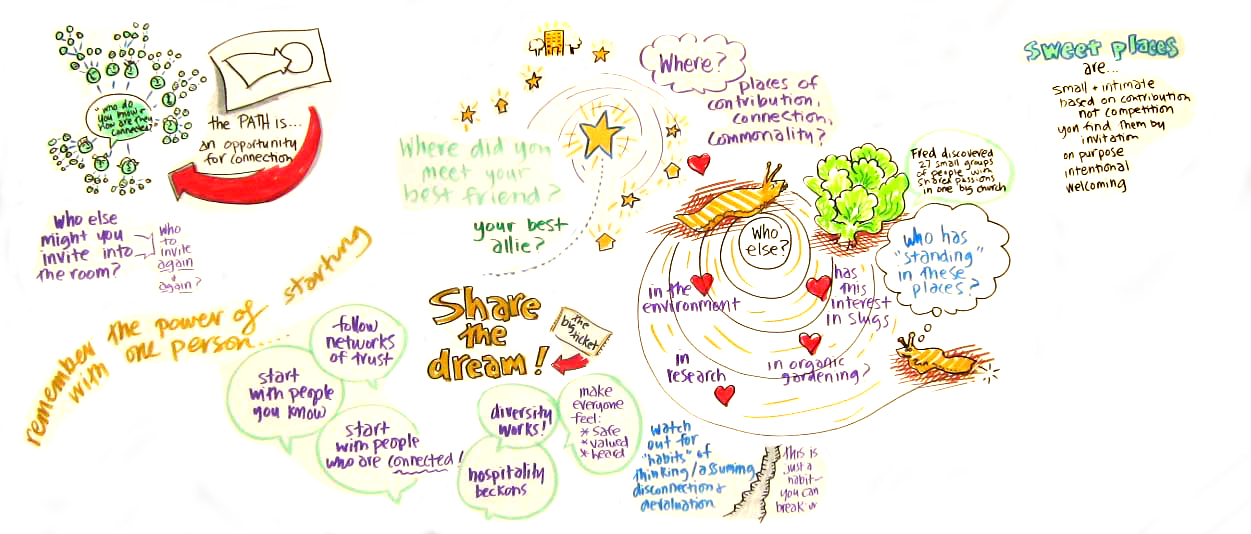 "who do
you know &
you are they
connected?"
the PATH is...
an opportunity
for connection
Who else
might you
invite into
the room?
Who
to
invite
again
&
again?
remember the power of starting
with one person...
follow
networks
of trust
start
with people
you know
start
with people
who are connected!
Where did you
meet your
best friend?
your best
allie?
Share
the
dream!
the
big ticket
diversity
works!
hospitality
beckons
make
everyone
feel:
* Safe
* valued
* heard
Where?
places of
contribution,
connection,
commonality?
Who
else?
in the
environment
has
this
interest
in slugs
in
research
in organic
gardening?
watch
out for
"habits" of
thinking/assuming
disconnection &
devaluation
this is
just a
habit-
you can
break it
Fred discovered
27 small groups
of people with
shared passions
in one big church
who has
"standing"
in these
places?
sweet places
are...
small + intimate
based on contribution
not competition
you find them by
invitation
on purpose
intentional
welcoming